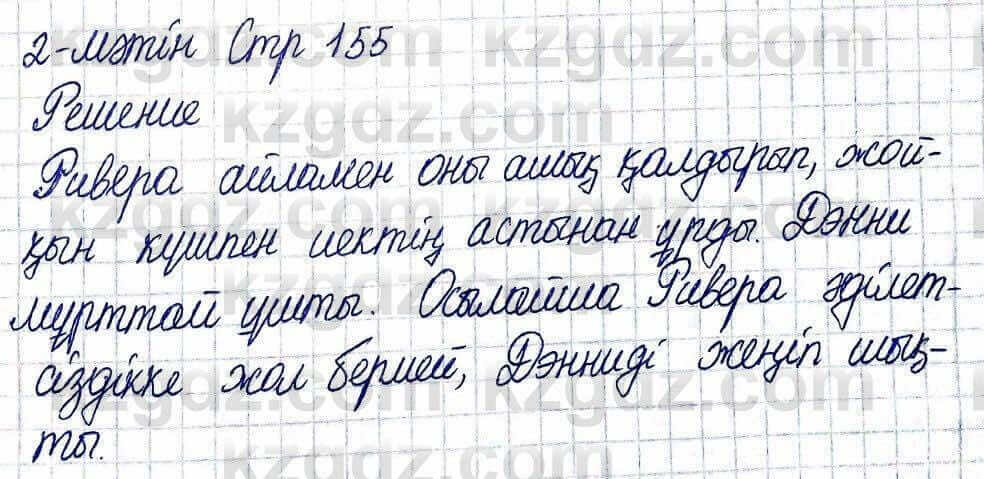 2-мәтін Стр 155
Решение
Ривера айламен оны ашық қалдырып, жой-
қын күшпен иектің астынан ұрды. Дэнни
мұрттай ұшты. Осылайша Ривера әділет-
сіздікке жол бермей, Дэнниді жеңіп шық-
ты.
kzgdz.com